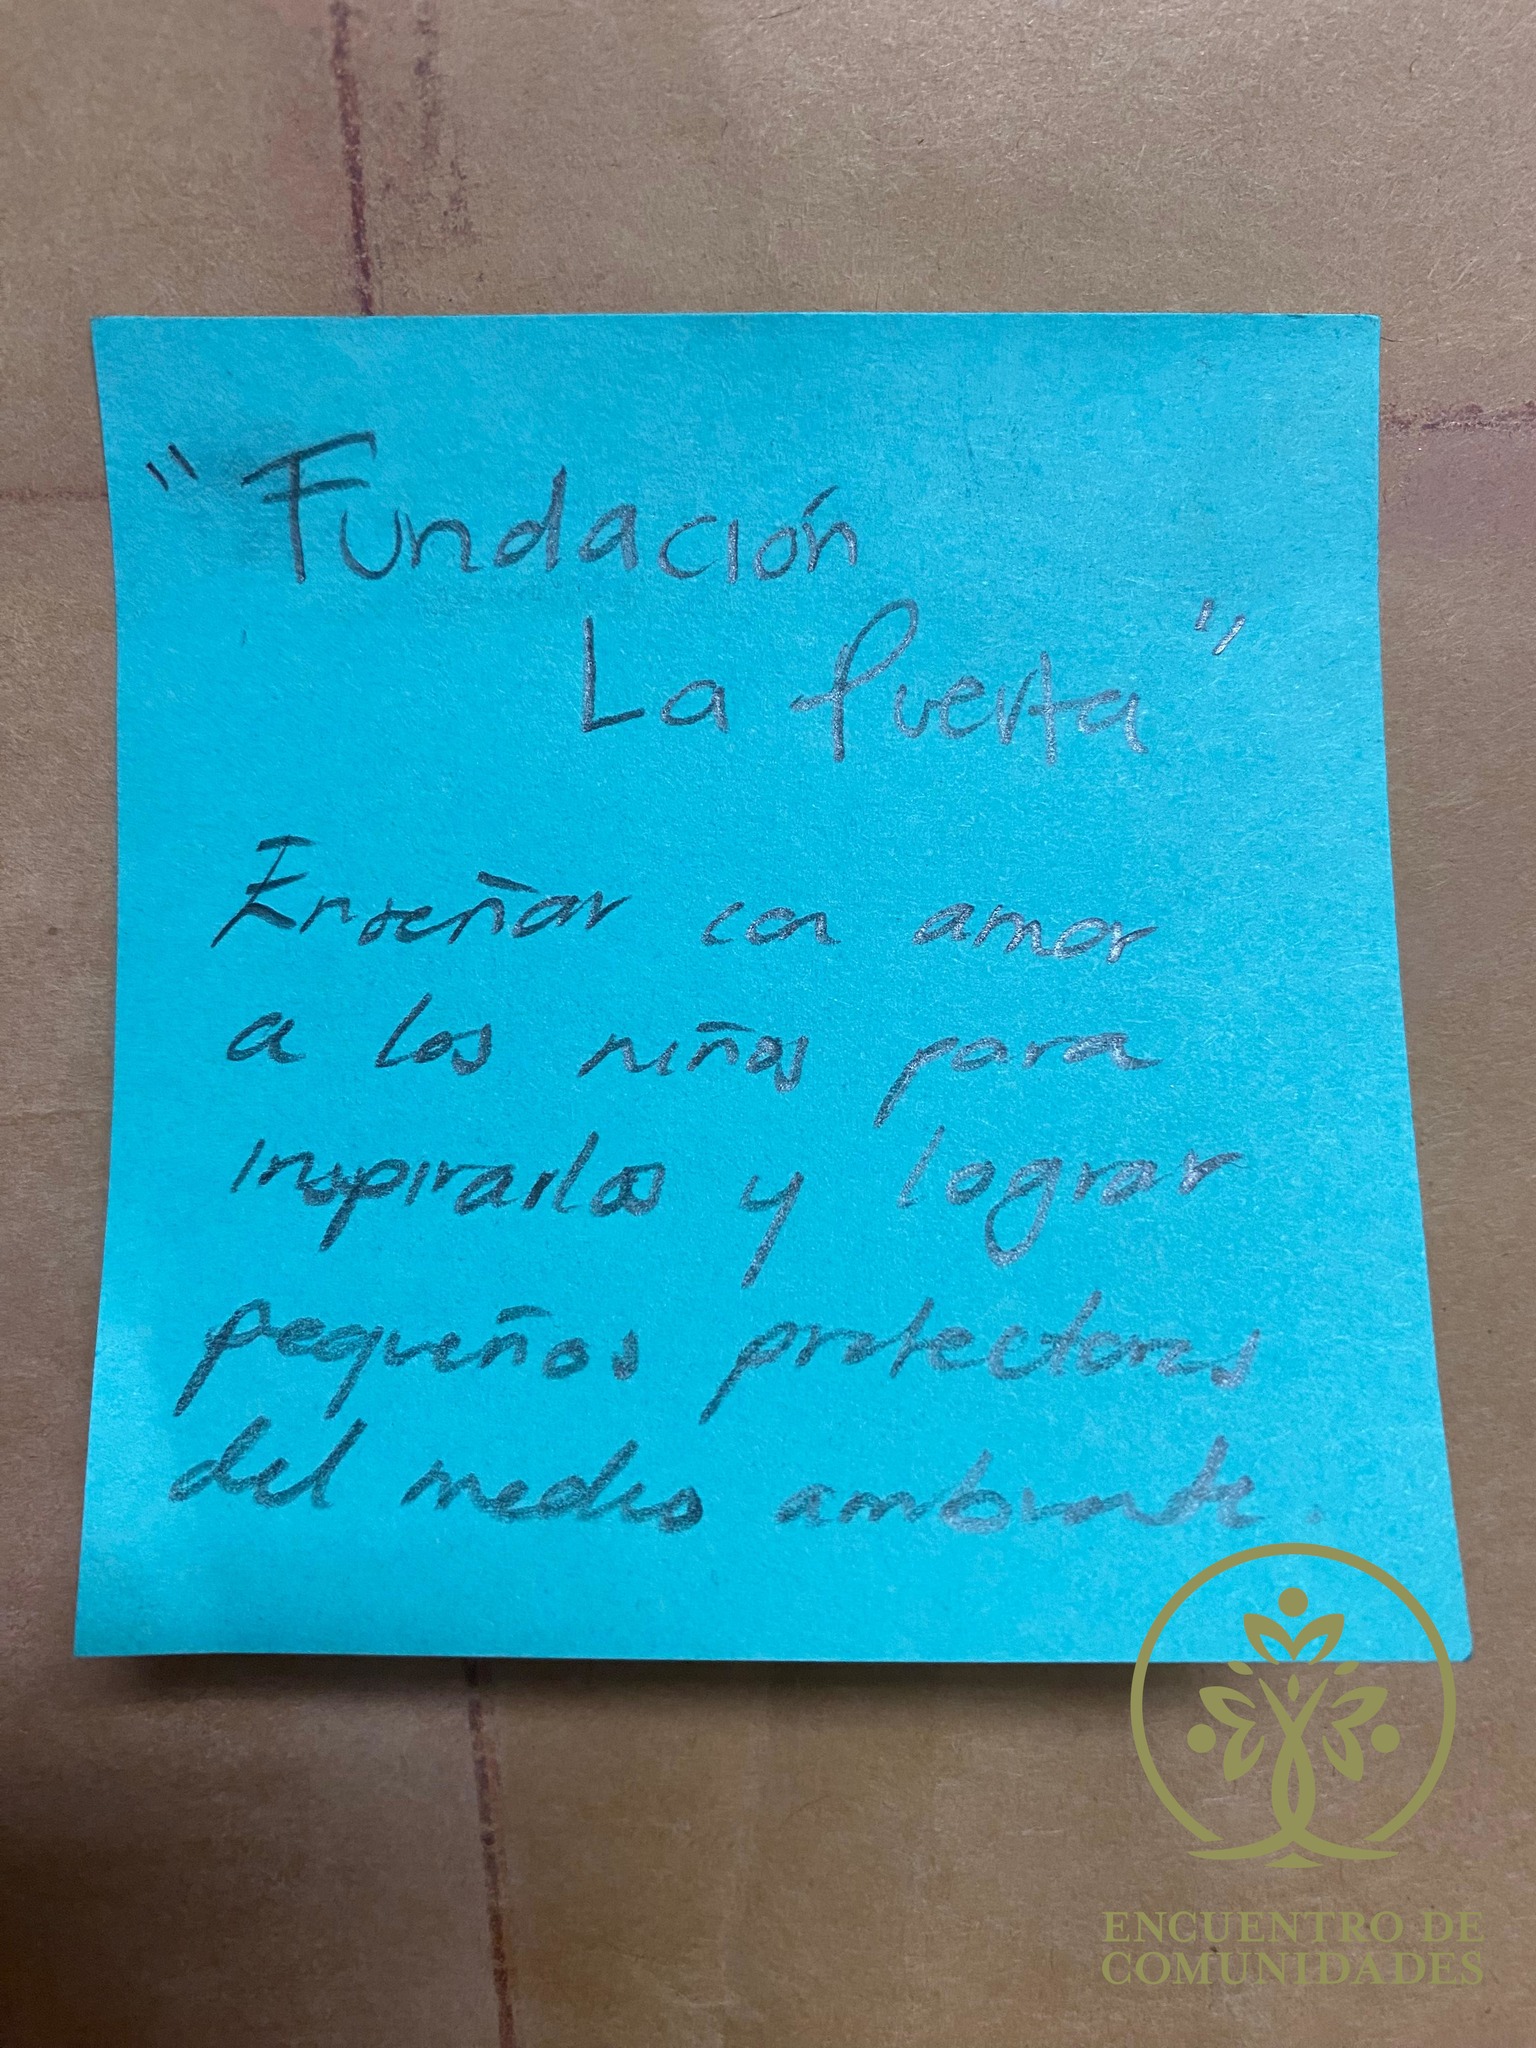 "Fundación
La Puerta"
Enseñar con amor
a los niños para
inspirarlos y lograr
pequeños protectores
del medio ambiente.
ENCUENTRO DE
COMUNIDADES